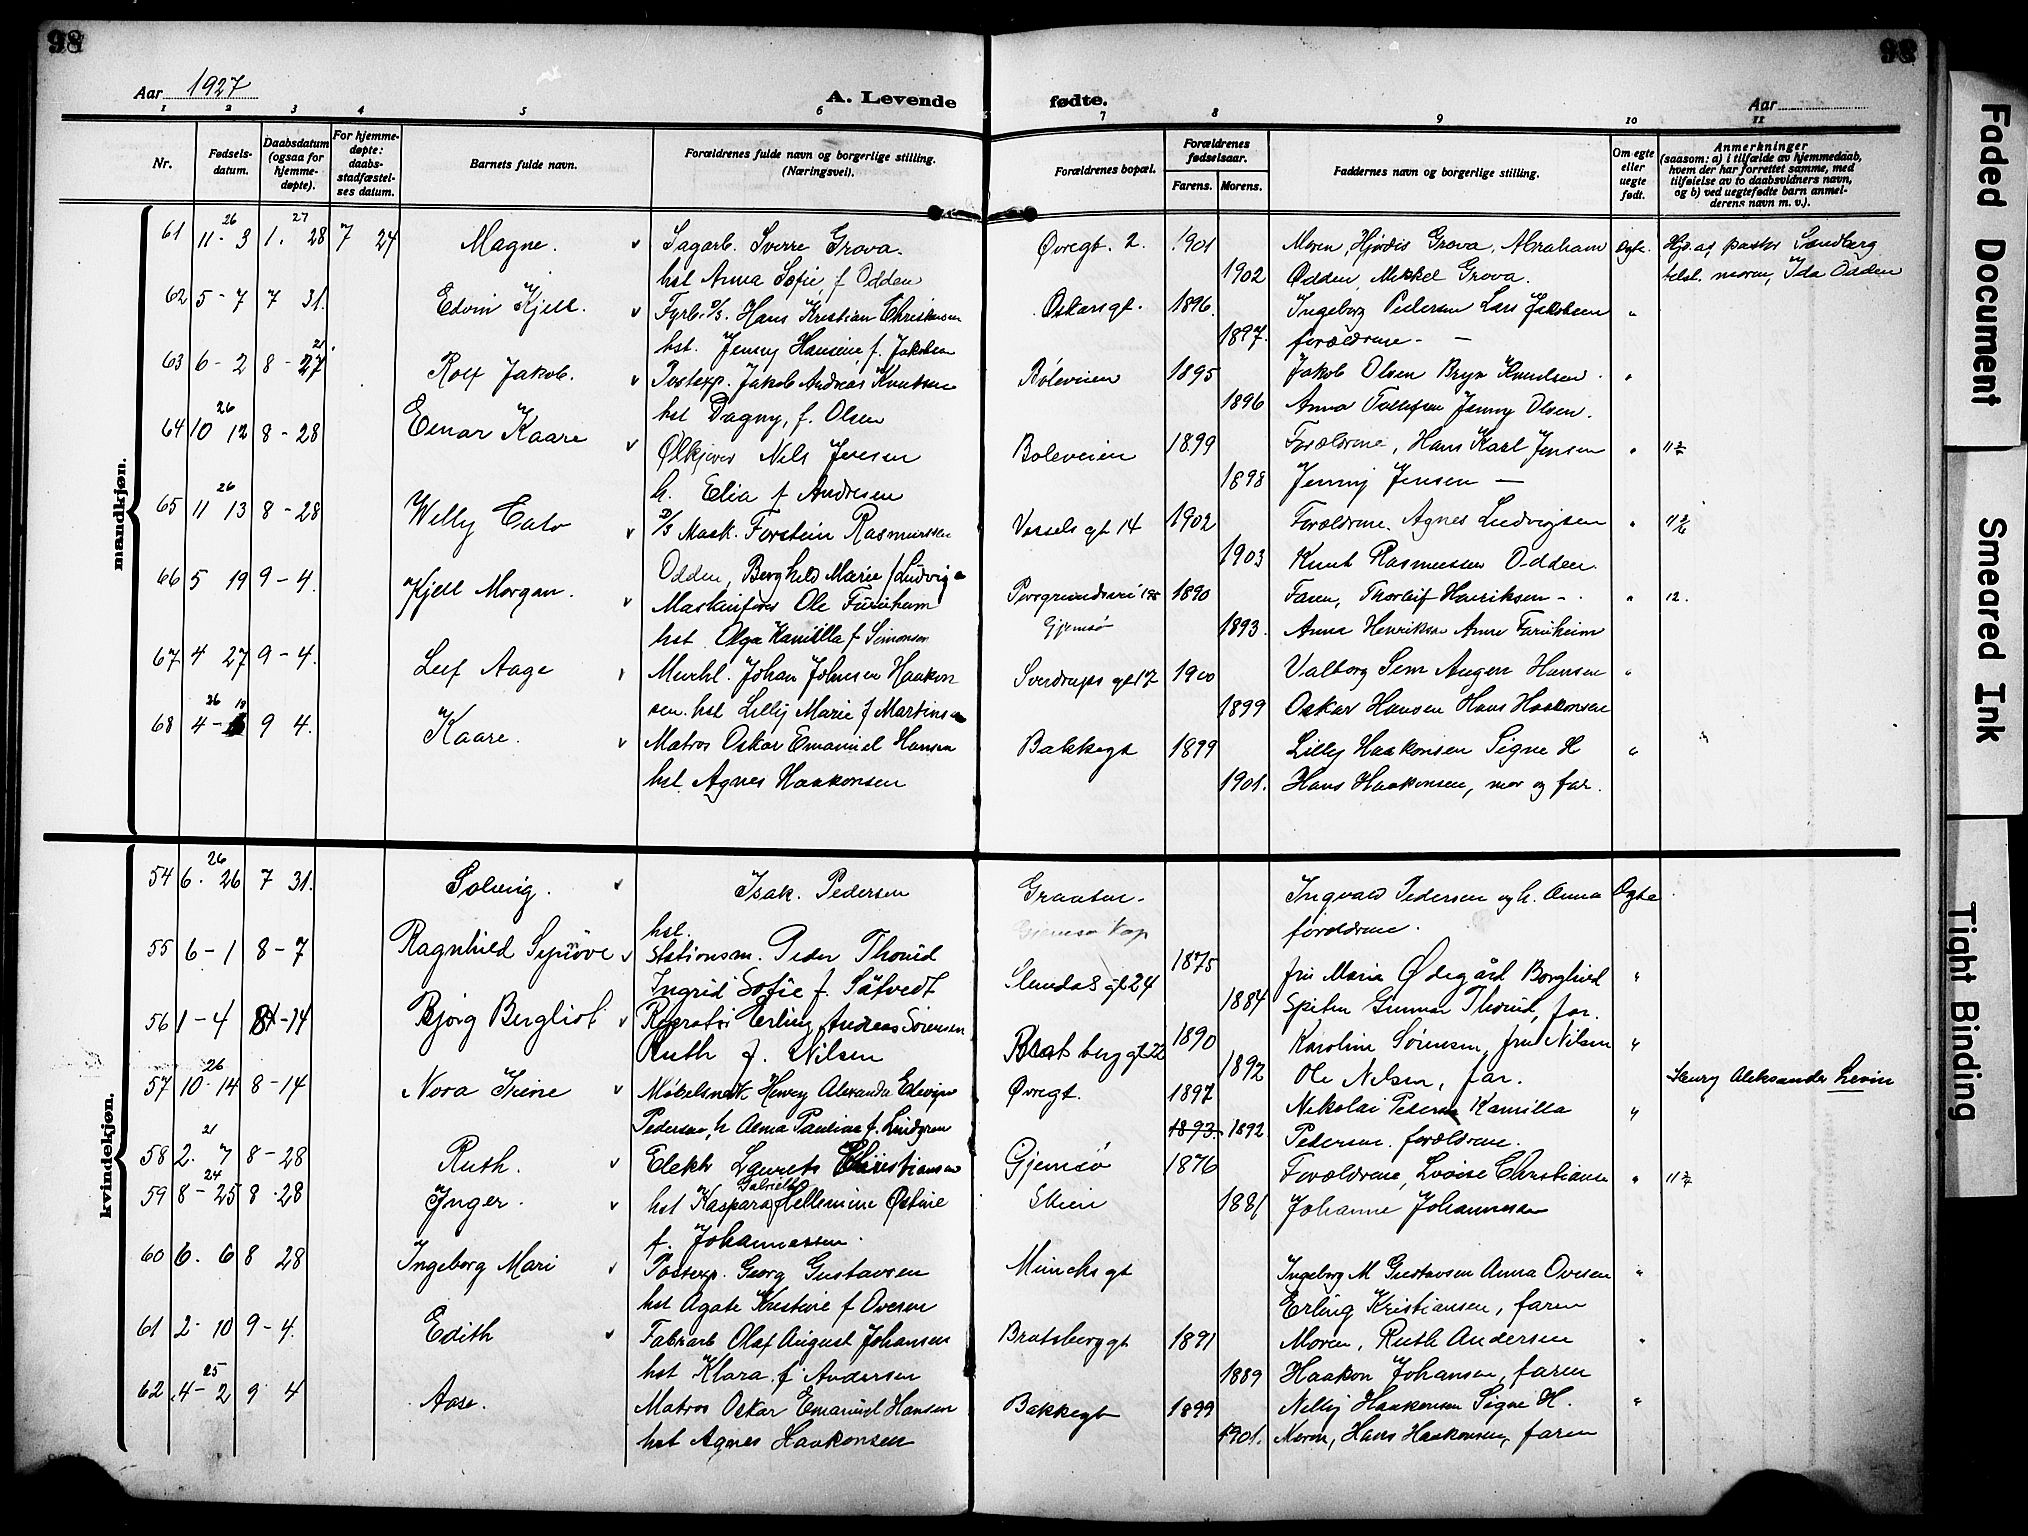 98
98
Aar 1927
A. Levende fødte.
Aar
1 2 3 4 5 6 7 8 9 10 11
Nr.
Fødsels-
datum.
Daabsdatum
(ogsaa for
hjemme-
døpte).
For hjemme-
døpte:
daabs-
stadfæstel-
ses datum.
Barnets fulde navn.
Forældrenes fulde navn og borgerlige stilling.
(Næringsvei).
Forældrenes bopæl.
Forældrenes
fødselsaar.
Farens. Morens.
Faddernes navn og borgerlige stilling.
Om egte
eller
uegte
født.
Anmerkninger
(saasom: a) i tilfælde av hjemmedaab,
hvem der har forrettet samme, med
tilføielse av to daabsvidners navn,
og b) ved uegtefødte barn anmel-
derens navn m. v.).
mandkjøn.
26 27
61 11-3 1. 28 7 24 Magne. v Sagarb. Sverre Grova. Øvregt. 2. 1901 Moren, Hjørdis Grova, Abraham Egte. Hjd. af pastor Sandberg
hst Anna Sofie, f Odden 1902 Odden, Mikkel Grova. telst. moren, Ida Odden
62 5-7 7 31. Edvin Kjell. v Fyrb. D/S. Hans Kristian Christensen Oskarsgt. 1896. Ingeborg Pedersen Lars Jakobsen "
hst. Jenny Hansine, f. Jakobsen 1897. forældrene. —
21.
63 6-2 8-27 Rolf Jakob. v Postexp. Jakob Andreas Knutsen Bøleveien 1895 Jakob Olsen Bryn Knudsen. "
hst Dagny, f. Olsen 1896 Anna Tollefsen Jenny Olsen.
26
64 10 12 8-28 Einar Kaare v Ølkjører Nils Jensen Boleveien 1899 Forældrene, Hans Karl Jensen "
h. Elia f Andresen 1898 Jenny Jensen —
26
65 11 13 8-28 Welly Cato v D/S Mask. Torstein Rasmussen Vessels gt 14 1902 Forældrene. Agnes Ludvigsen "
Odden, Berghild Marie f Ludvig 1903 Knut Rasmussen Odden.
66 5 19 9-4. Kjell Morgan. v Maskinfører Ole Furuheim 1890 Faren, Thorleif Henriksen - . " 12.
hst. Olga Kamilla f Simonsen Gjemsø 1893. Anna Henriksen Anne Furuheim
67 4 27 9-4. Leif Aage v Murhl. Johan Johnsen Haakon Sverdrups gt 17 1900 Valborg Sem Aagen Hansen "
sen. hst Lilly Marie f Martinsen 1899 Oskar Hansen Hans Haakonsen
26 18
68 4- 9 4. Kaare. v Matros Oskar Emanuel Hansen Bakkegt 1899 Lilly Haakonsen Signe H "
hst Agnes Haakonsen 1901. Hans Haakonsen, mor og far.
kvindekjøn.
26
54 6. 26 7 31. Solveig. v Isak. Pedersen Graaten. Ingvald Pedersen og h. Anna Egte
hst. Gjemsø Kap forældrene.
55 6-1 8-7 Ragnhild Synøve v Stationsm. Peder Thorud 1875 fru Maria Ødegård Borghild "
Ingrid Sofie f. Såtvedt 1884 Gunnar Thorud, far.
56 1-4 8-14 Bjørg Bergliot v Reparatør Erling Andreas Sørensen Bratsberggt. 22 1890 Karoline Sørensen, fru Nilsen "
Ruth f. Nilsen 1892 Ole Nilsen, far.
26
57 10-14 8-14 Nora Irene v Møbelsned. Henry Alexander Edevign Øvregt. 1897 Nikolai Petersen Kamilla " Henry Aleksander Levin
Pedersen, h Alma Pauline f. Lindgren 1893. 1892 Pedersen. forældrene.
21
58 2. 7 8-28 Ruth. v Elektr Laurits Christiansen Gjemsø 1876 Forældrene, Lovise Christiansen "
24 Gabrielle
59 8-25 8 28 Inger. v hst Kaspara Hellemine Østine Skien 1881 Johanne Johannessen
f. Johannessen.
60 6. 6 8 28 Ingeborg Mari v Postexp. Georg Gustavsen Muncksgt Ingeborg M Gustavsen Anna Ovesen "
hst Agate Kristine f Ovesen Erling Kristiansen, faren
61 2-10 9-4. Edith v Fabrarb Olaf August Johansen Bratsberggt 1891 Moren, Ruth Andersen "
hst Klara f. Andersen 1889 Haakon Johansen, faren
25
62 4-2 9 4 Aase. Matros Oskar Emanuel Hansen Bakkegt 1899 Nelly Haakonsen Signe H. "
hst Agnes Haakonsen 1901. Moren, Hans Haakonsen, faren
Faded Document
Smeared Ink
Tight Binding